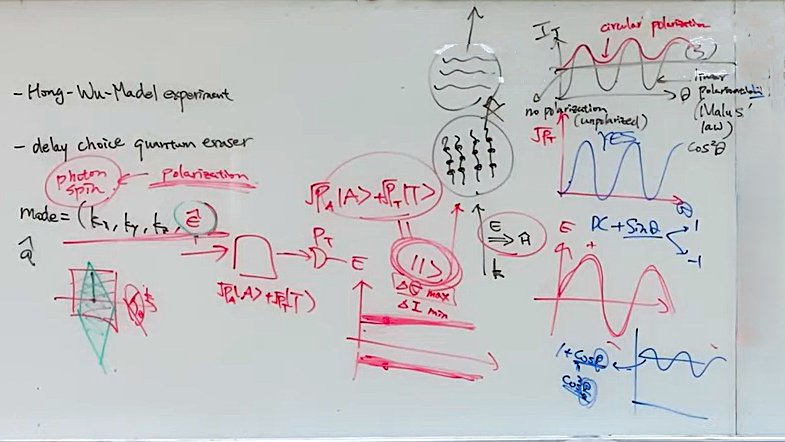 - Hong-Wu-Madel experiment
- delay choice quantum eraser
photon spin ← polarization
mode = (kx, ky, kz, ε̂)
â
√P_A|A⟩+√P_T|T⟩
P_T
√P_A|A⟩+√P_T|T⟩
||
|1⟩
Δθ max
Δ I min
E
E ⇒ A
k
I_T
circular polarization
(3)
linear polarization
(Malus' law)
θ
no polarization
(unpolarized)
√P_T
YES
cos²θ
θ
DC + sinθ
1
-1
E
+
-
1+cosθ
cos²θ